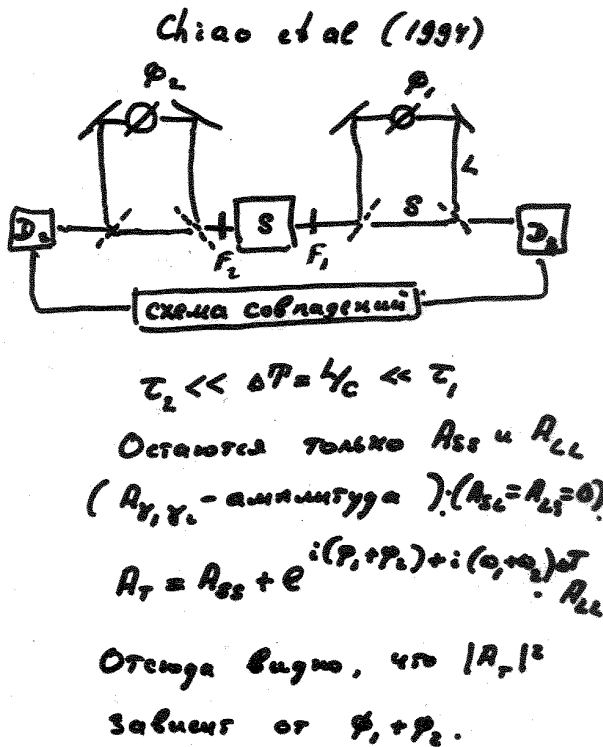 Chiao et al (1994)
φ₂ φ₁
L
S
D₂ F₂ S F₁ D₂
схема совпадений
τ₂ << ΔT = L/c << τ₁
Остаются только A_SS и A_LL
(A_γ₁γ₂ - амплитуда). (A_SL = A_LS = 0)
A_T = A_SS + e^{i(φ₁+φ₂)+i(ω₁+ω₂)ΔT} · A_LL
Отсюда видно, что |A_T|²
зависит от φ₁+φ₂.